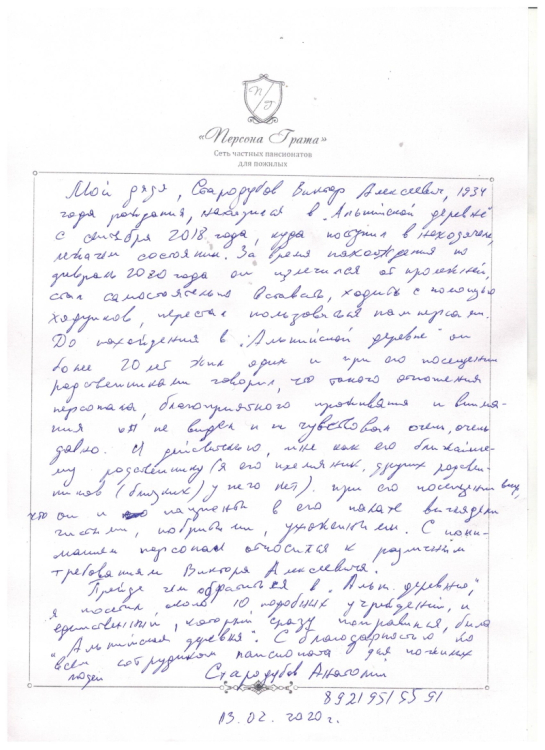 П
Г
«Персона Грата»
Сеть частных пансионатов
для пожилых
Мой дядя, Стародубов Виктор Алексеевич, 1934
года рождения, находился в "Альпийской деревне"
с сентября 2018 года, куда поступил в неходячем,
лежачем состоянии. За время нахождения по
февраль 2020 года он излечился от пролежней,
стал самостоятельно вставать, ходить с помощью
ходунков, перестал пользоваться памперсами.
До нахождения в "Альпийской деревне" он
более 20 лет жил один и при его посещении
родственниками говорил, что такого отношения
персонала, благоприятного проживания и внима-
ния он не видел и не чувствовал очень, очень
давно. И действительно, мне как его ближайше-
му родственнику (я его племянник, других родствен-
ников (близких) у него нет). при его посещении
что он и пациенты в его палате выглядели
чистыми, побритыми, ухоженными. С пони-
манием персонал относится к различным
требованиям Виктора Алексеевича.
Прежде чем обратиться в "Альп. деревню",
я посетил около 10 подобных учреждений, и
единственный, который сразу понравился, была
"Альпийская деревня". С благодарностью ко
всем сотрудникам пансионата для пожилых
людей
Стародубов Анатолий
89219515591
13.02.2020г.